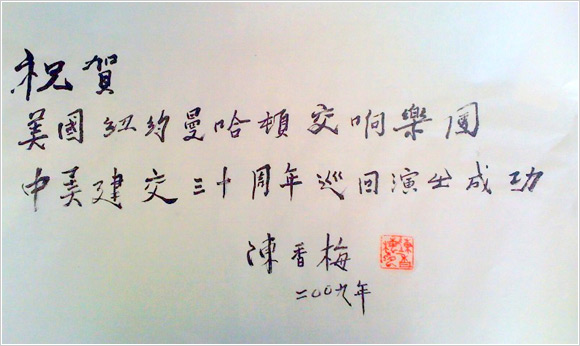 祝賀
美國紐約曼哈頓交响樂團
中美建交三十周年巡回演出成功
陳香梅
二〇〇九年